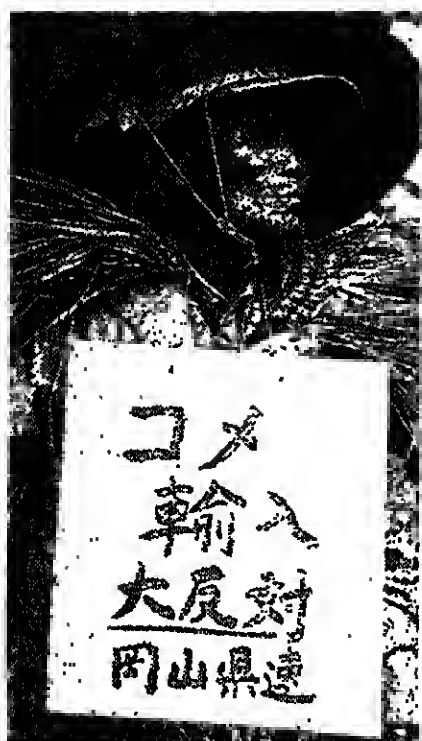 コメ
輸入
大反対
岡山県連